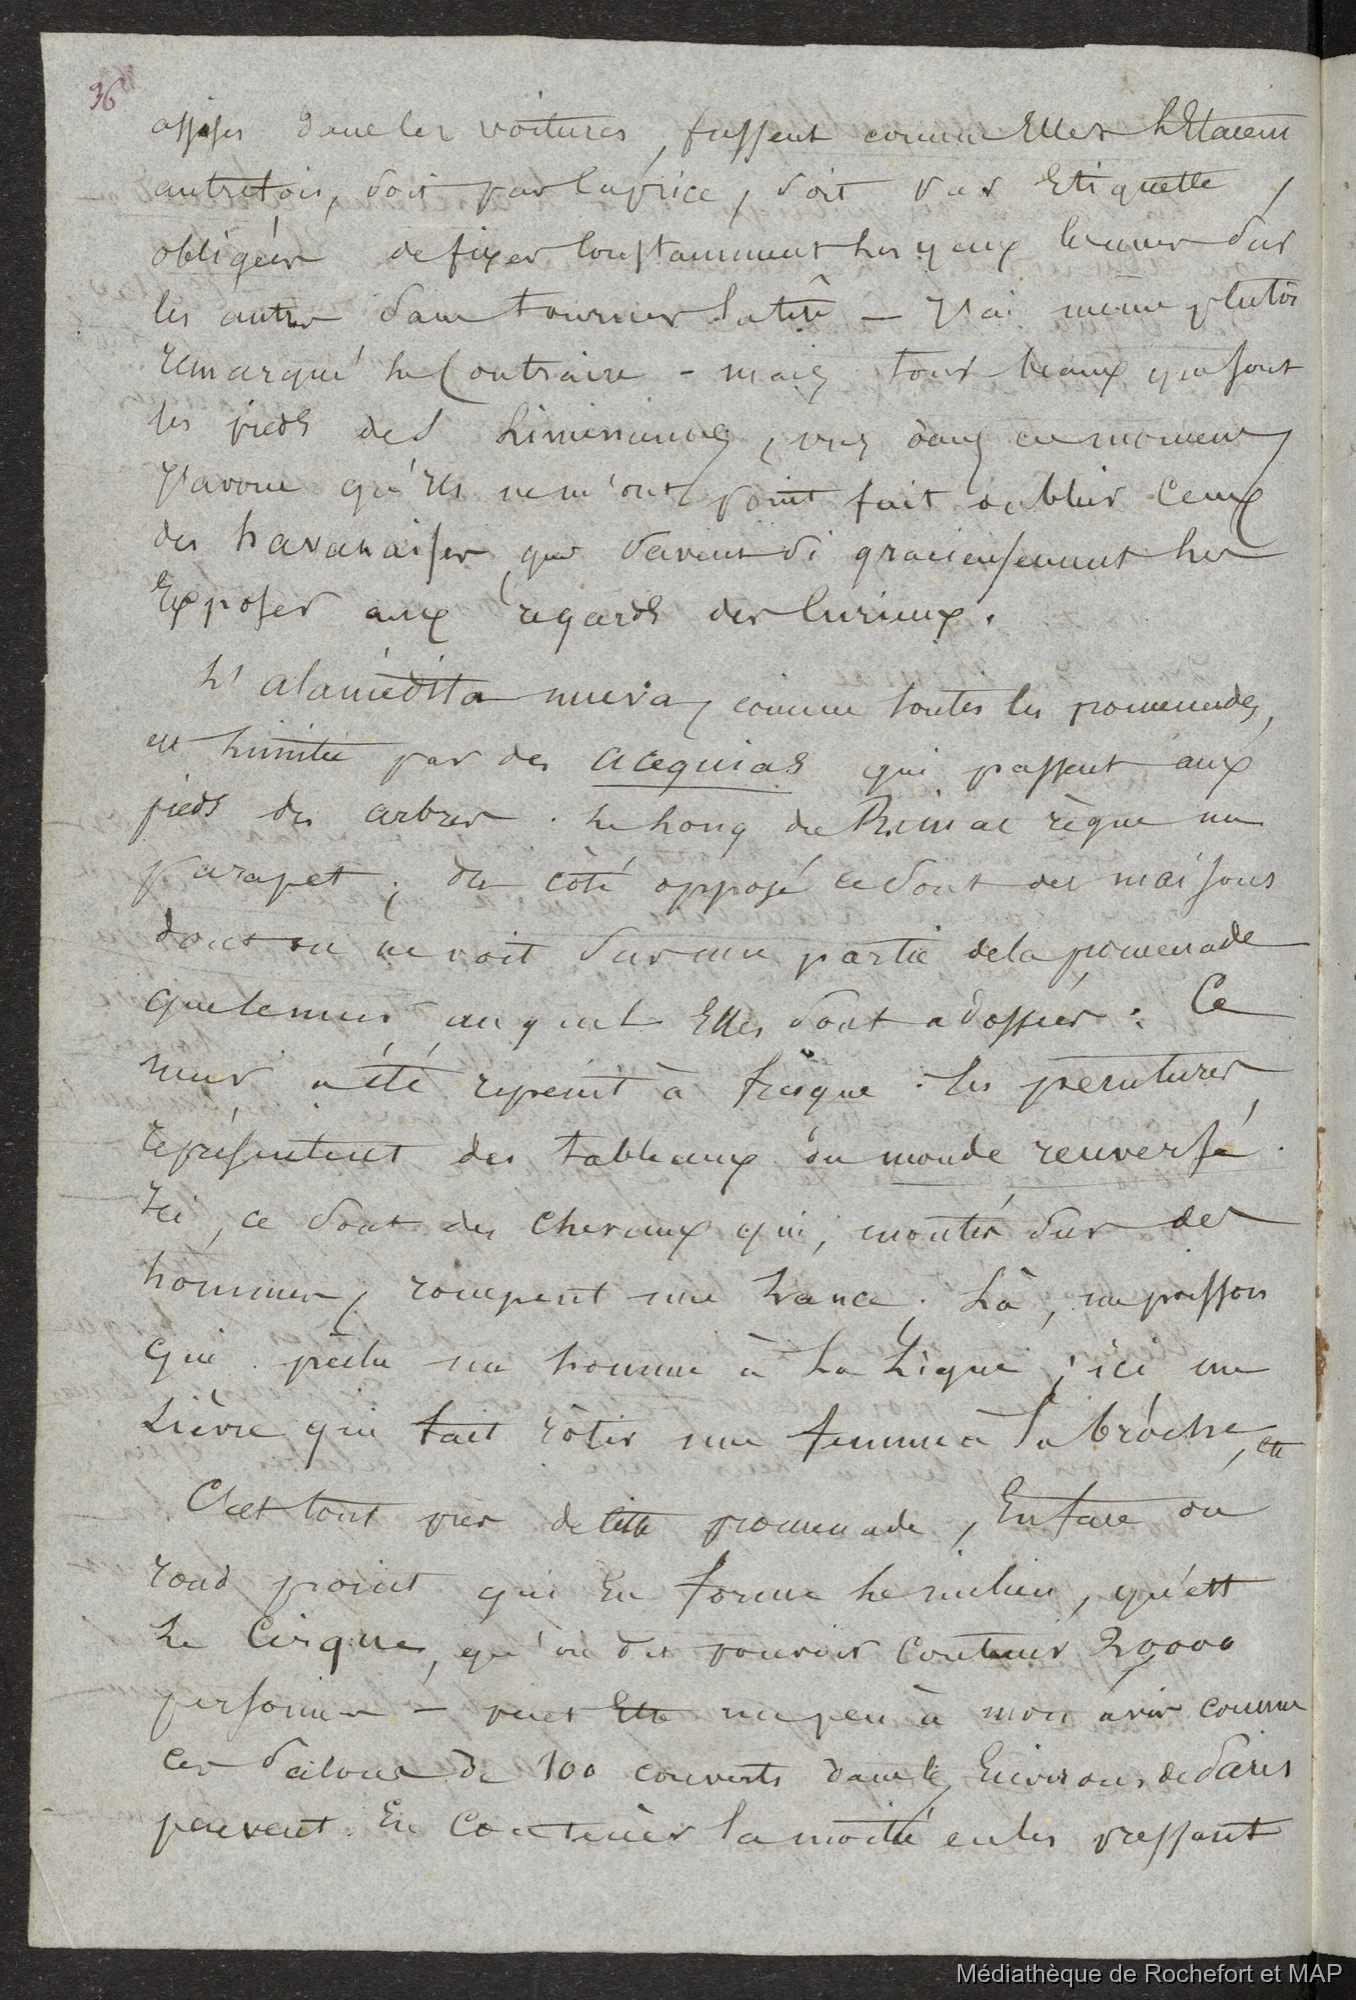 36
assises dans les voitures, fussent comme Elles l'Etaient
autrefois, soit par caprice, soit par Etiquette,
obligées de fixer constamment les yeux les unes sur
les autres sans tourner la tête — J'ai même plutôt
remarqué le Contraire - mais tous beaux que sont
les pieds des Liméniennes, vus dans ce moment,
J'avoue qu'ils ne m'ont point fait oublier ceux
des havanaises, qui savent si gracieusement les
Exposer aux regards des Curieux.
L'alamédita nueva, comme toutes les promenades,
est limitée par des acequias qui passent aux
pieds des arbres. Le long du Rimac règne un
parapet; du côté opposé ce sont des maisons
dont on ne voit sur une partie de la promenade
que le mur auquel Elles sont adossées : Ce
mur a été repeint à fresque. les peintures
représentent des tableaux du monde renversé.
Ici, ce sont des chevaux qui, montés sur des
hommes, rompent une Lance. Là, un poisson
qui pêche un homme à La Ligne; ici un
Lièvre qui fait rôtir une femme à la broche, etc
C'est tout près de cette promenade, En face du
rond point qui En forme le milieu, qu'est
Le Cirque, qu'on dit pouvoir Contenir 20000
personnes — un peu à mon avis comme
ces salons de 100 couverts dans les Environs de Paris
peuvent En Contenir la moitié en les pressant
Médiathèque de Rochefort et MAP